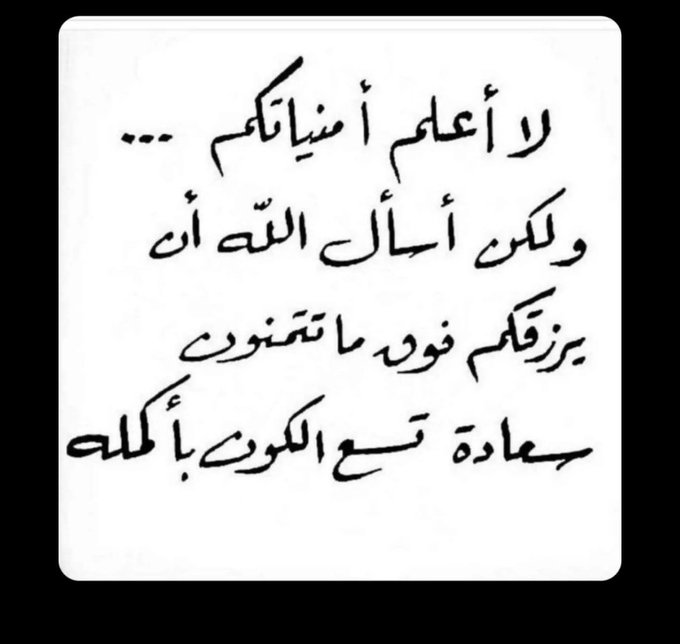 لا أعلم أمنياتكم ...
ولكن أسأل اللّه أن
يرزقكم فوق ما تتمنون
سعادة تسع الكون بأكمله